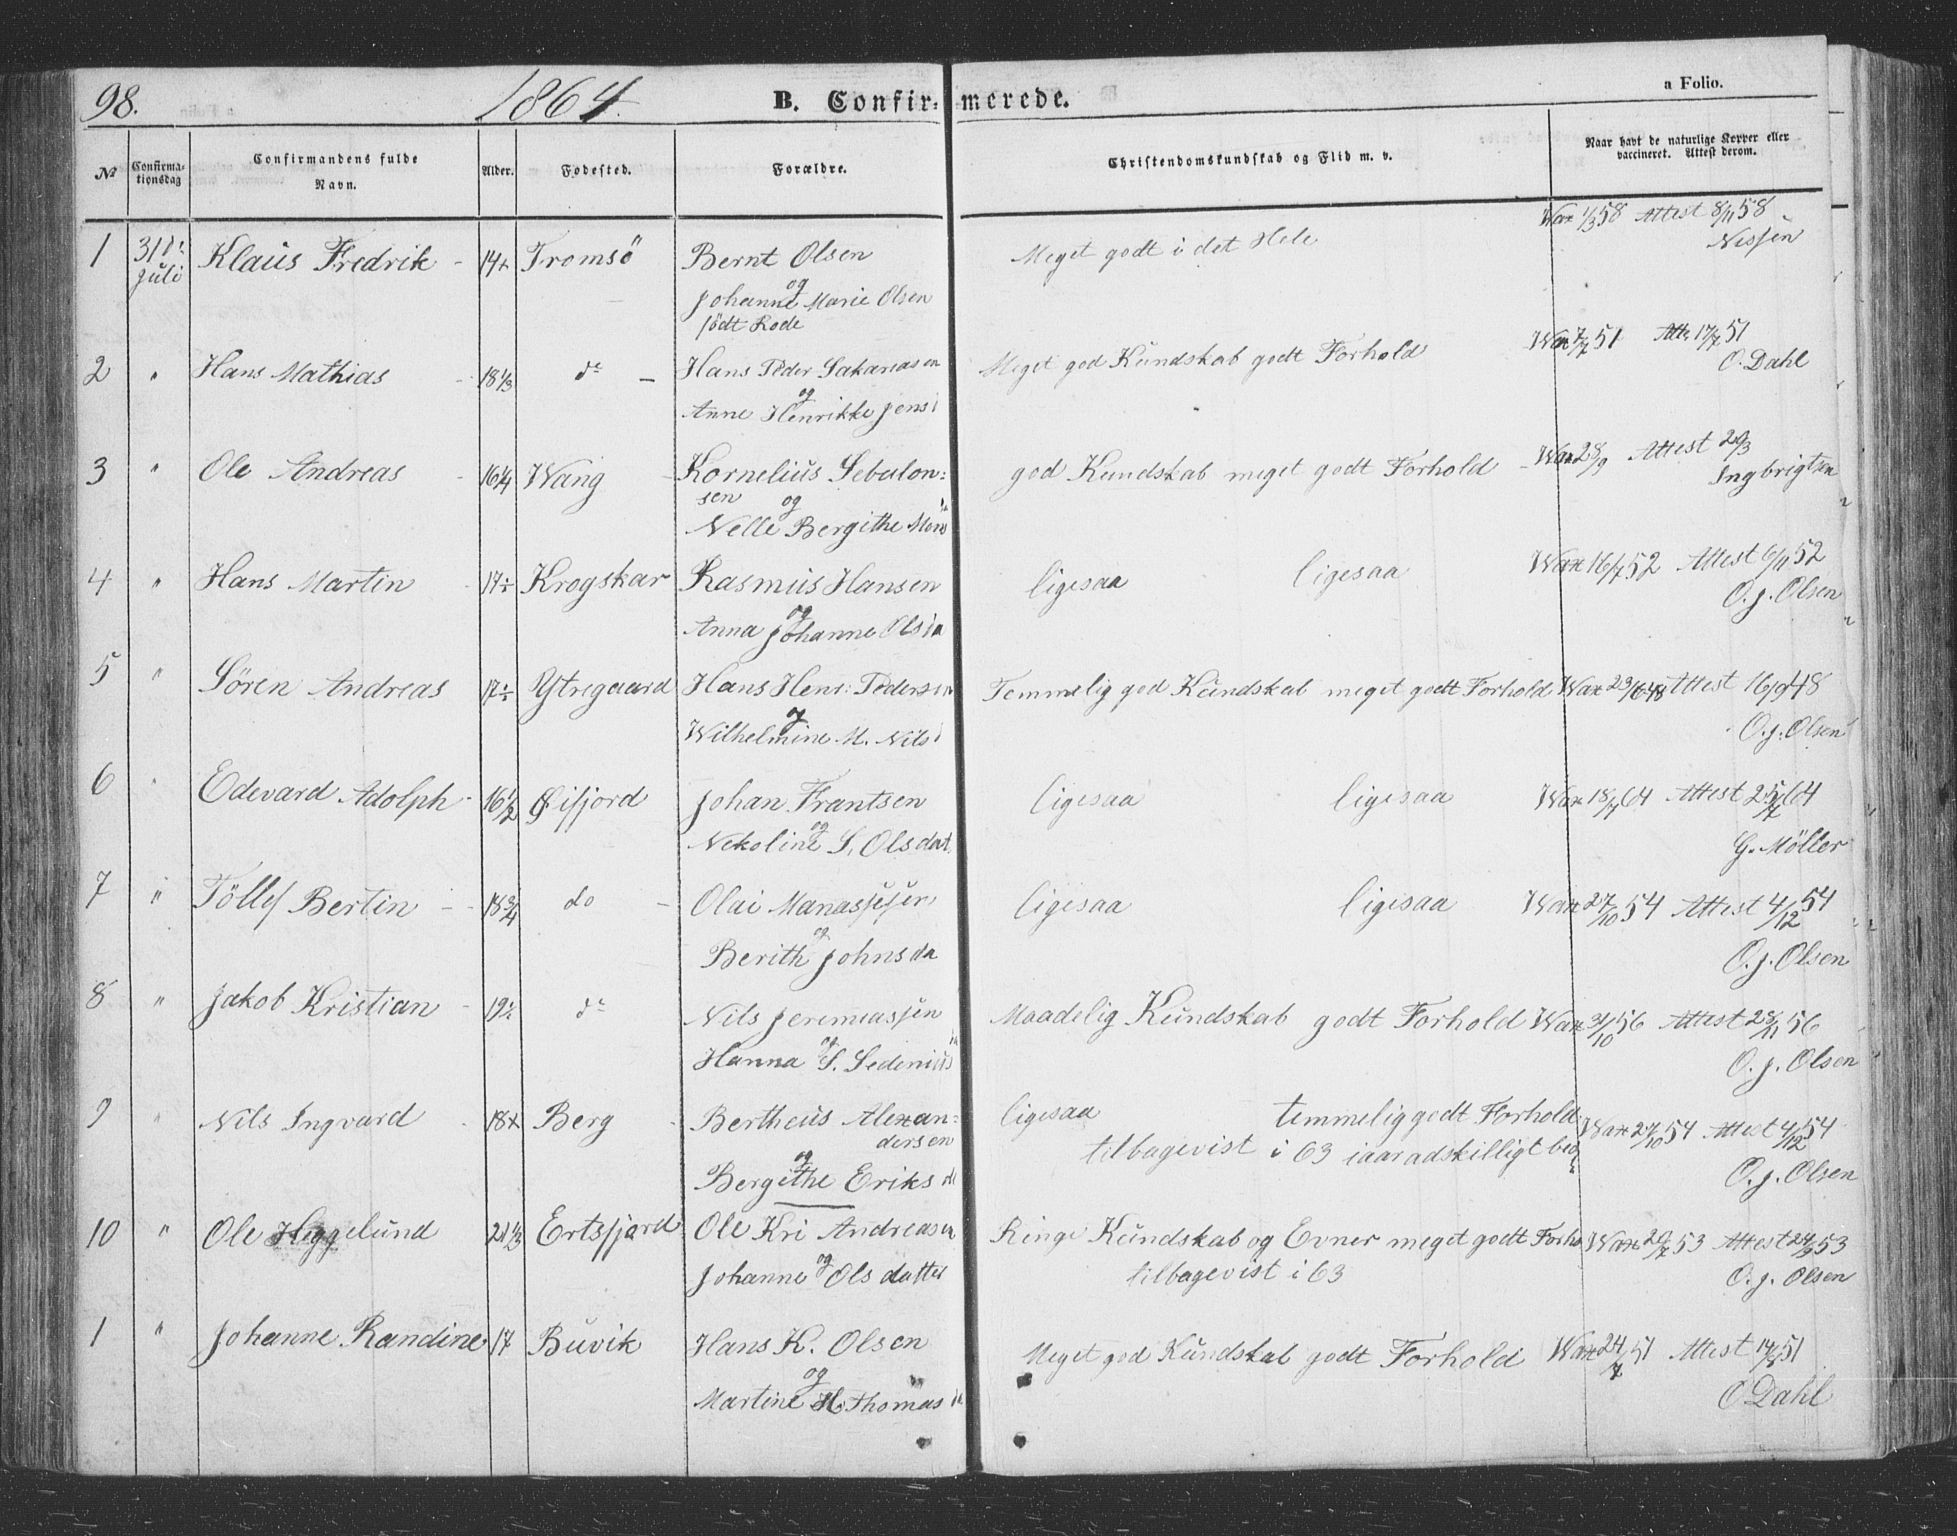 98. 1864. B. Confirmerede. a Folio.
№ Confirmationsdag Confirmandens fulde Navn. Alder. Fodested. Forældre. Christendomskundskab og Flid m. v. Naar havt de naturlige Kopper eller vaccineret. Attest derom.
1 31te Klaus Fredrik 14+ Tromsö Bernt Olsen Meget godt i det Hele Wax 1/3 58 Attest 8/11 58
Juli og Nissen
Johanne Marie Olsen
födt Rode
2 " Hans Mathias 18 1/3 do Hans Peder Sakariasen Meget god Kundskab godt Forhold Wax 7/7 51 Att. 17/7 51
og O. Dahl
Anne Henrikke Jens
3 " Ole Andreas 16 1/4 Wang Kornelius Sebulon= god Kundskab meget godt Forhold Wax 28/9 Attest 20/3
sen og Ingbrigtsen
Nelle Bergithe
4 " Hans Martin 17÷ Krogskar Rasmus Hansen ligesaa ligesaa Wax 16/7 52 Attest 6/11 52
og O. J. Olsen
Anna Johanne Olsda
5 " Sören Andreas 17÷ Ytregaard Hans Henr: Pedersen Temmelig god Kundskab meget godt Forhold Wax 23/6 48 Attest 16/9 48
og O. J. Olsen
Wilhelmine M. Nils
6 " Edevard Adolph 16 1/2 Øifjord Johan Frantsen ligesaa ligesaa Wax 18/7 64 Attest 25/7 64
og G. Möller
Nekoline S. Olsdat.
7 " Töllef Bertin 18 3/4 do Olai Manassesen ligesaa ligesaa Wax 27/10 54 Attest 4/12 54
og O. J. Olsen
Berith Johnsda
8 " Jakob Kristian 19÷ do Nils Jeremiassen Maadelig Kundskab godt Forhold Wax 31/10 56 Attest 28/11 56
og O. J. Olsen
Hanna S. Sedenius
9 " Nils Ingvard 18+ Berg Bertheus Alexan= ligesaa temmelig godt Forhold Wax 27/10 54 Attest 4/12 54
dersen tilbagevist i 63 iaar adskilligt
og O. J. Olsen
Bergithe Eriks
10 " Ole Heggelund 21 1/3 Ertsfjord Ole Kri Andreasen Ringe Kundskab og Evner meget godt Forho Wax 20/7 53 Attest 24/9 53
og tilbagevist i 63 O. J. Olsen
Johanne Olsdatter
1 " Johanne Randine 17 Buvik Hans K. Olsen Meget god Kundskab godt Forhold Wax 24/7 51 Attest 51
og O Dahl
Martine H. Thomas